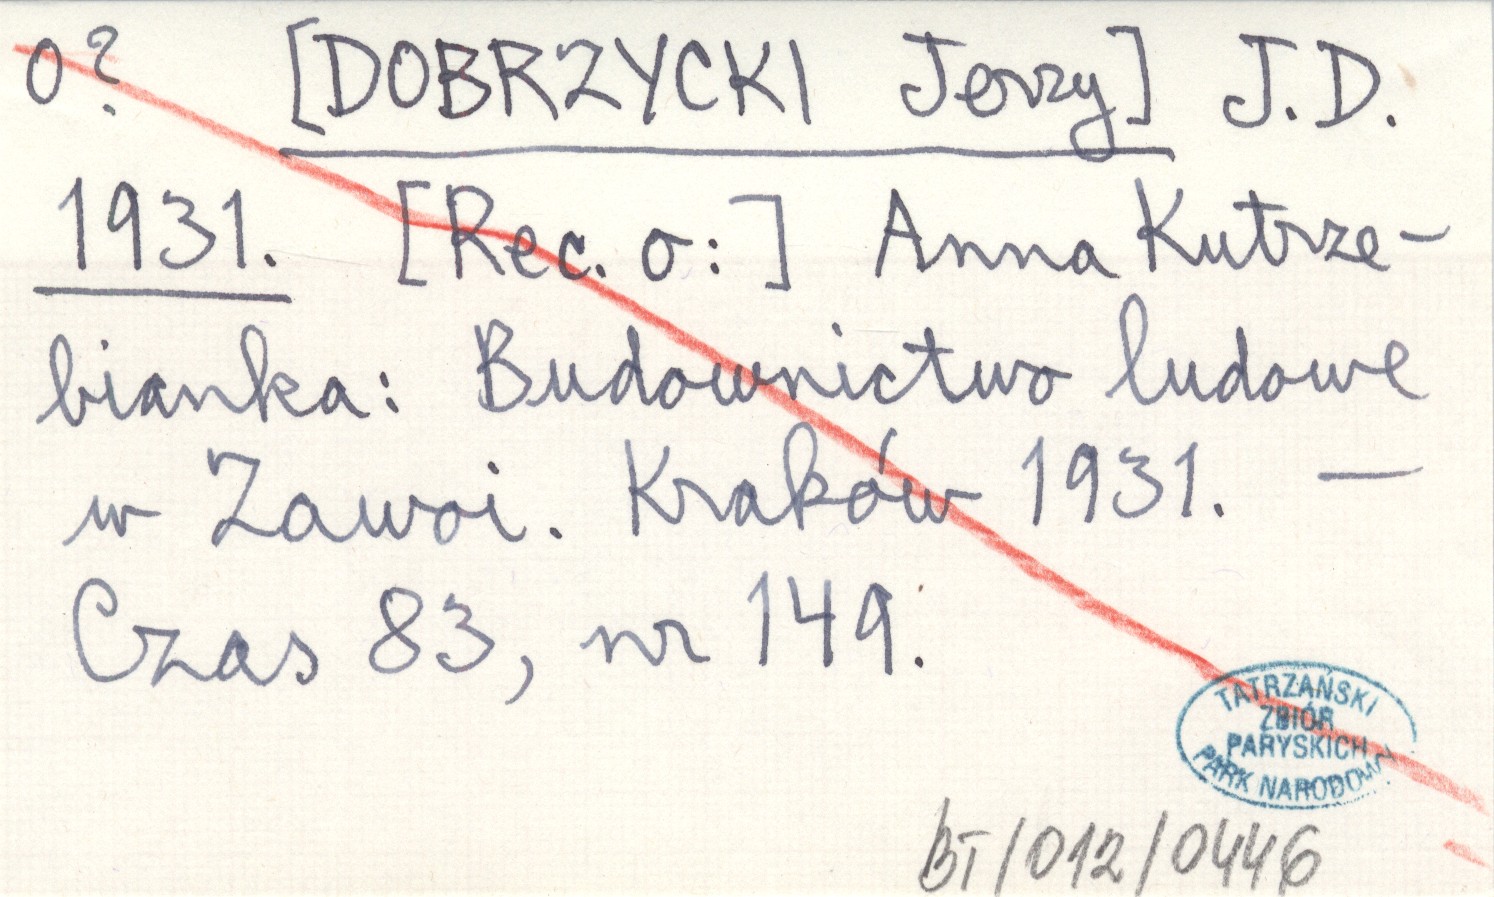 o? [DOBRZYCKI Jerzy] J.D.
1931. [Rec. o:] Anna Kutrze-
bianka: Budownictwo ludowe
w Zawoi. Kraków 1931. —
Czas 83, nr 149.
TATRZAŃSKI
ZBIÓR
PARYSKICH
PARK NARODOWY
BT/012/0446